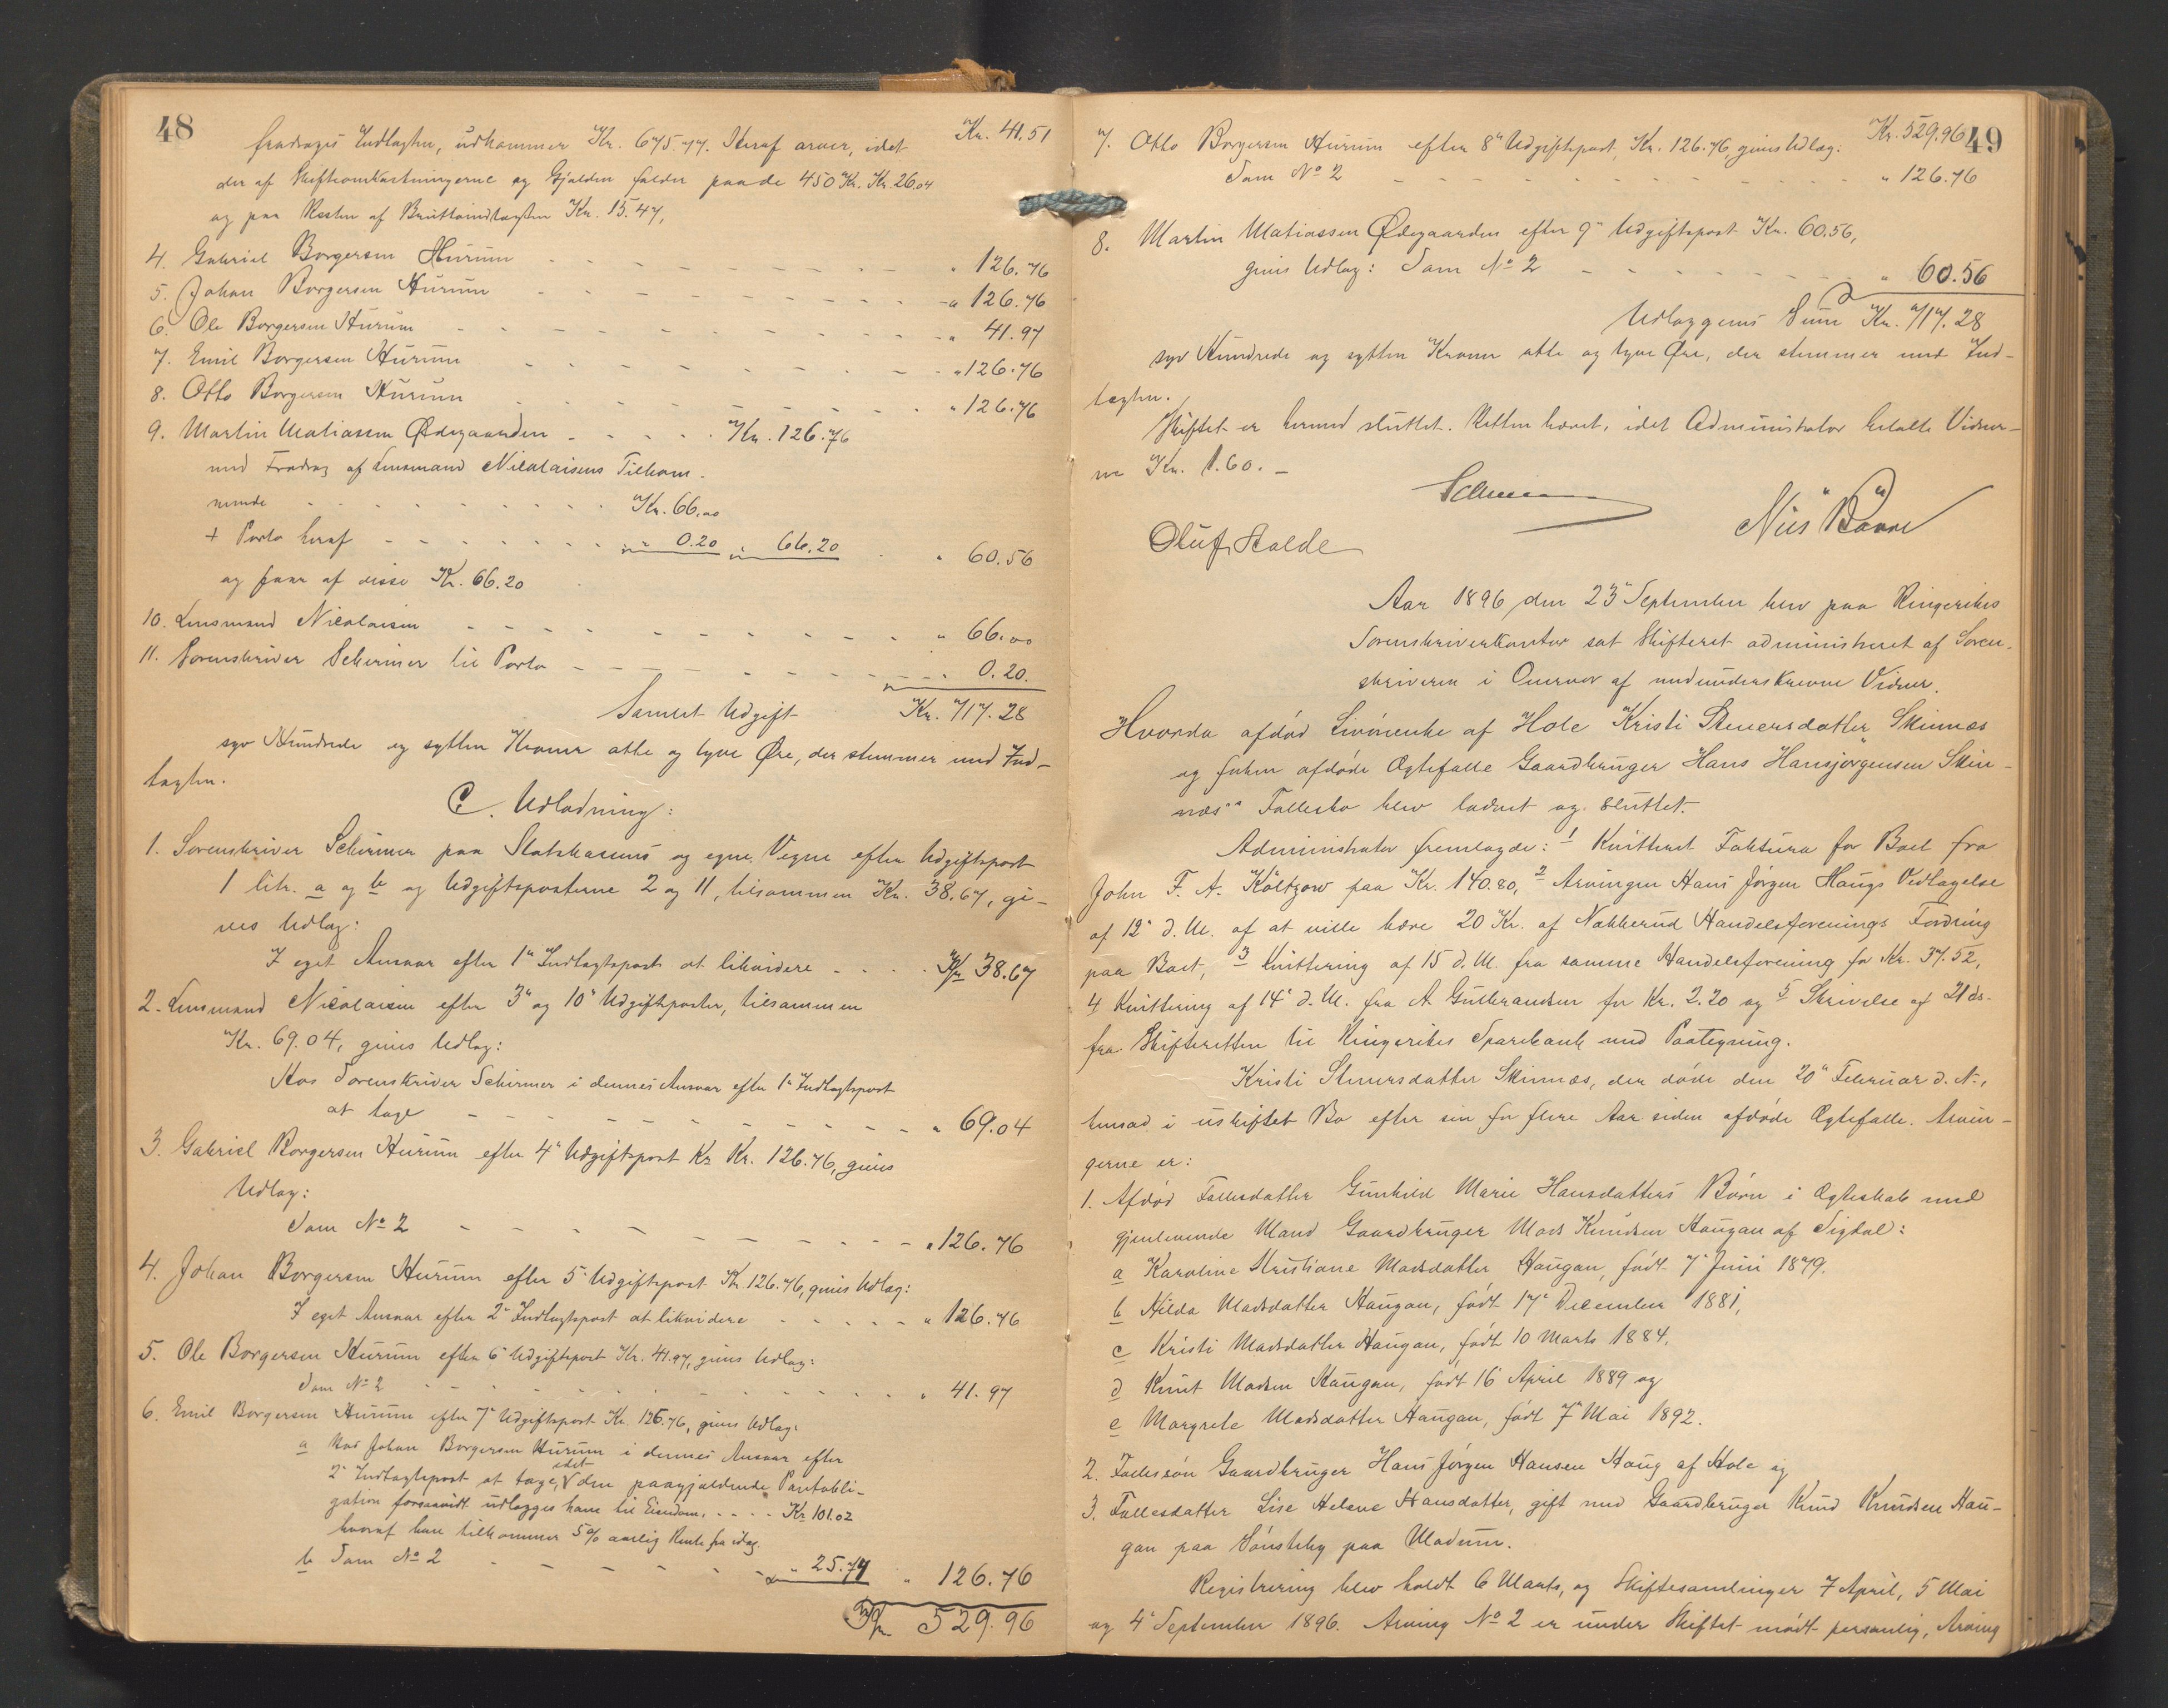 48
Kr. 41.51
fradrages Indtægten, udkommer Kr. 675.77. Heraf arver, idet
der af Skifteomkostningerne og Gjælden falder paa de 450 Kr. Kr. 26.04
og paa Resten af Bruttoindtægten Kr. 15.47,
4. Gabriel Borgersen Hurum - - - - " 126.76
5. Johan Borgersen Hurum - - - - " 126.76
6. Ole Borgersen Hurum - - - - " 41.97
7. Emil Borgersen Hurum - - - - " 126.76
8. Otto Borgersen Hurum - - - - " 126.76
9. Martin Matiassen Ødegaarden - - - - Kr. 126.76
med Fradrag af Lensmand Nicolaisens Tilkom-
mende - - - - Kr. 66.00
+ Porto heraf - - - - " 0.20 " 66.20 " 60.56
og faar af disse Kr. 66.20
10. Lensmand Nicolaisen - - - - " 66.00
11. Sorenskriver Schirmer til Porto - - - - " 0.20.
Samlet Udgift Kr. 717.28
syv Hundrede og sytten Kroner otte og tyve Øre, der stemmer med Ind-
tægten.
C. Udlodning:
1. Sorenskriver Schirmer paa Statskassens og egne Vegne efter Udgiftspost
1 litr. a og b og Udgiftsposterne 2 og 11, tilsammen Kr. 38.67, gi-
ves Udlæg:
I eget Ansvar efter 1" Indtægtspost at likvidere - - - - Kr. 38.67
2. Lensmand Nicolaisen efter 3" og 10" Udgiftsposter, tilsammen
Kr. 69.04, gives Udlæg:
Hos Sorenskriver Schirmer i dennes Ansvar efter 1" Indtægtspost
at tage - - - - " 69.04
3. Gabriel Borgersen Hurum efter 4" Udgiftspost Kr Kr. 126.76, gives
Udlæg:
Som No 2 - - - - " 126.76
4. Johan Borgersen Hurum efter 5" Udgiftspost Kr. 126.76, gives Udlæg:
I eget Ansvar efter 2" Indtægtspost at likvidere - - - - " 126.76
5. Ole Borgersen Hurum efter 6" Udgiftspost Kr. 41.97, gives Udlæg:
Som No 2 - - - - " 41.97
6. Emil Borgersen Hurum efter 7" Udgiftspost Kr. 126.76, gives Udlæg:
a Hos Johan Borgersen Hurum i dennes Ansvar efter
2" Indtægtspost at tage, idet den paagjældende Pantobli-
gation forsaavidt udlægges ham til Eiendom, - - - - Kr. 101.02
hvoraf han tilkommer 5% aarlig Rente fra idag.
b Som No 2 - - - - " 25.74 " 126.76
Kr. 529.96
49
Kr. 529.96
7. Otto Borgersen Hurum efter 8" Udgiftspost, Kr. 126.76, gives Udlæg:
Som No 2 - - - - " 126.76
8. Martin Matiassen Ødegaarden efter 9" Udgiftspost Kr. 60.56,
gives Udlæg: Som No 2 - - - - " 60.56
Udlæggenes Sum Kr. 717.28
syv Hundrede og sytten Kroner otte og tyve Øre, der stemmer med Ind-
tægten.
Skiftet er hermed sluttet. Retten hævet, idet Administrator betalte Vidner-
ne Kr. 1.60. -
Schirmer
Oluf Halde
Aar 1896 den 23" September blev paa Ringerikes
Sorenskriverkontor sat Skifteret administreret af Soren-
skriveren i Overvær af medunderskrevne Vidner.
Hvorda afdød Livørenke af Hole Kristi Steversdatter Skinnes
og forhen afdøde Ægtefælle Gaardbruger Hans Hansjørgensen Skin-
næs" Fællesbo blev ladnet og sluttet.
Administrator fremlagde: 1 Kvitteret Faktura for Boet fra
John F. A. Køltzow paa Kr. 140.80, 2 Arvingen Hans Jørgen Haugs Vedtagelse
af 12" d. M. af at ville bære 20 Kr. af Nakkerud Handelsforenings Fordring
paa Boet, 3 Kvittering af 15 d. M. fra samme Handelsforening for Kr. 37.52,
4 Kvittering af 14" d. M. fra A. Gulbrandsen for Kr. 2.20 og 5 Skrivelse af 21 ds.
fra Skifteretten til Ringerikes Sparebank med Paategning.
Kristi Steversdatter Skinnæs, der døde den 20" Februar d. A.,
hensad i uskiftet Bo efter sin for flere Aar siden afdøde Ægtefælle. Arvin-
gerne er:
1. Afdød Fællesdatter Gunhild Marie Hansdatters Børn i Ægteskab med
gjenlevende Mand Gaardbruger Mads Knudsen Haugan af Sigdal:
a Karoline Kristiane Madsdatter Haugan, født 7" Juni 1879.
b Hilda Madsdatter Haugan, født 17" December 1881,
c Kristi Madsdatter Haugan, født 10 Marts 1884,
d Knut Madsen Haugan, født 16" April 1889 og
e Margrete Madsdatter Haugan, født 7" Mai 1892.
2. Fællessøn Gaardbruger Hans Jørgen Hansen Haug af Hole og
3. Fællesdatter Lise Helene Hansdatter, gift med Gaardbruger Knud Knudsen Hau-
gan paa Sønsteby paa Modum.
Registrering blev holdt 6 Marts, og Skiftesamlinger 7 April, 5 Mai
og 4" September 1896. Arving No 2 er under Skiftet mødt personlig, Arving